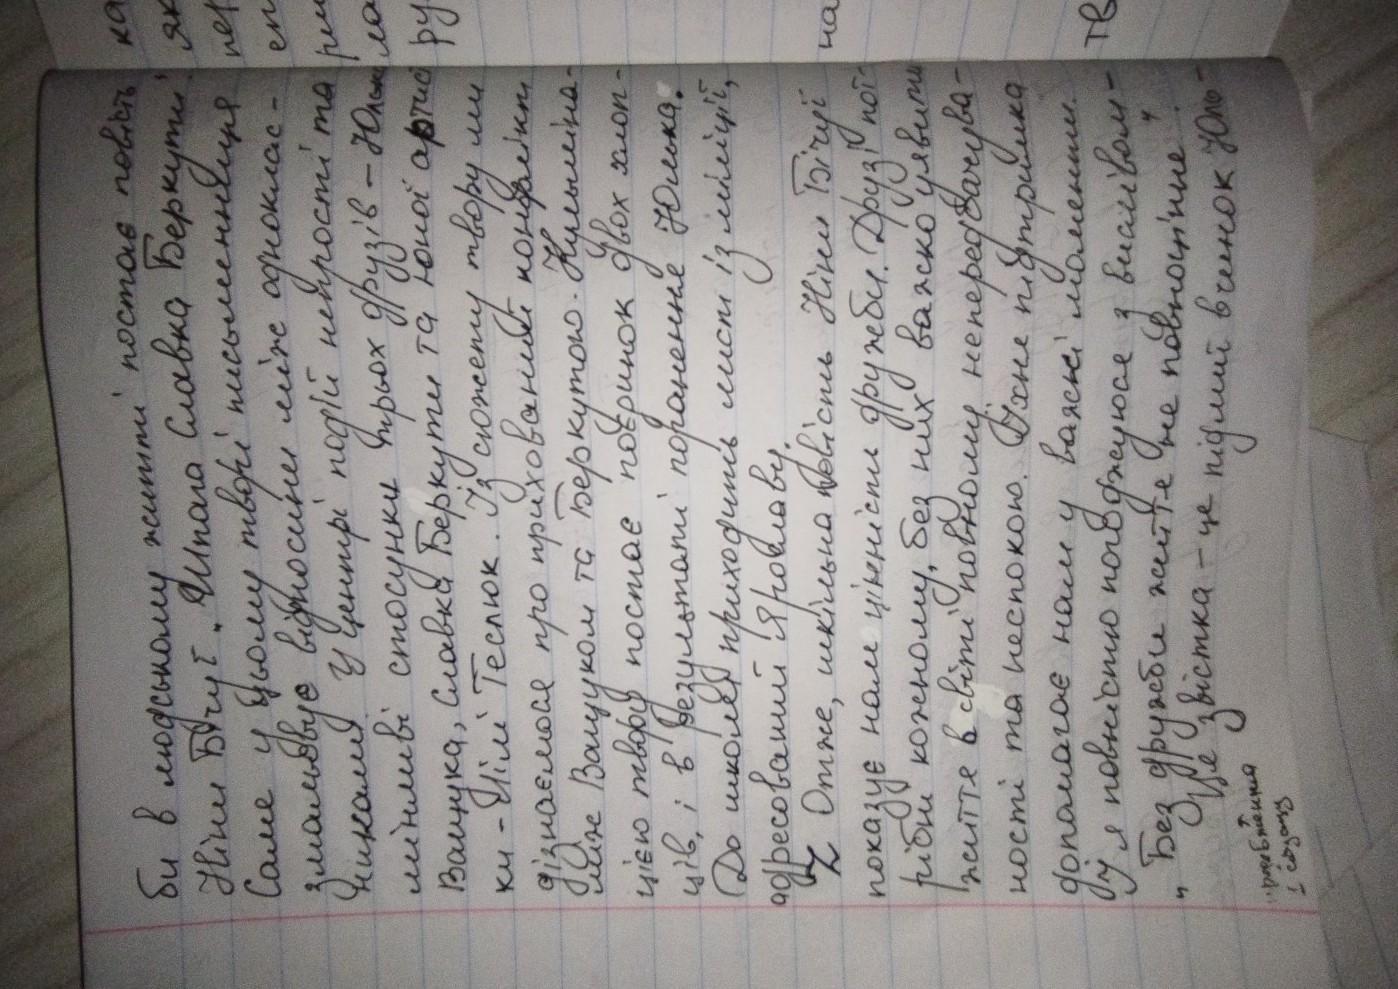 би в людському житті постає повість
Ніни Бічуї "Шпага Славка Беркути".
Саме у цьому творі письменниця
змальовує відносини між одноклас-
никами. У центрі подій непрості та
мінливі стосунки трьох друзів – Юлька
Ващука, Славка Беркути та юної артист
ки – Лілі Теслюк. Із сюжету твору ми
дізнаємося про прихований конфлікт
між Ващуком та Беркутою. Кульміна-
цією твору постає поєдинок двох хлоп-
ців, і в результаті поранення Юлька.
До школи приходить лист із міліції,
адресований Яросл аву.
Z Отже, шкільна повість Ніни Бічуї
показує нам цінність дружби. Друзі пот-
рібні кожному, без них важко уявити
життя в світі повному непередбачува-
ності та неспокою. Їхне підтримка
допомагає нам у важкі моменти.
І я повністю погоджуюсе з висловом
"Без дружби життя не повноцінне".
Це звістка – це підлий вчинок Юль-
ка
як
пер
сп
рим
ла
ру
на
тв